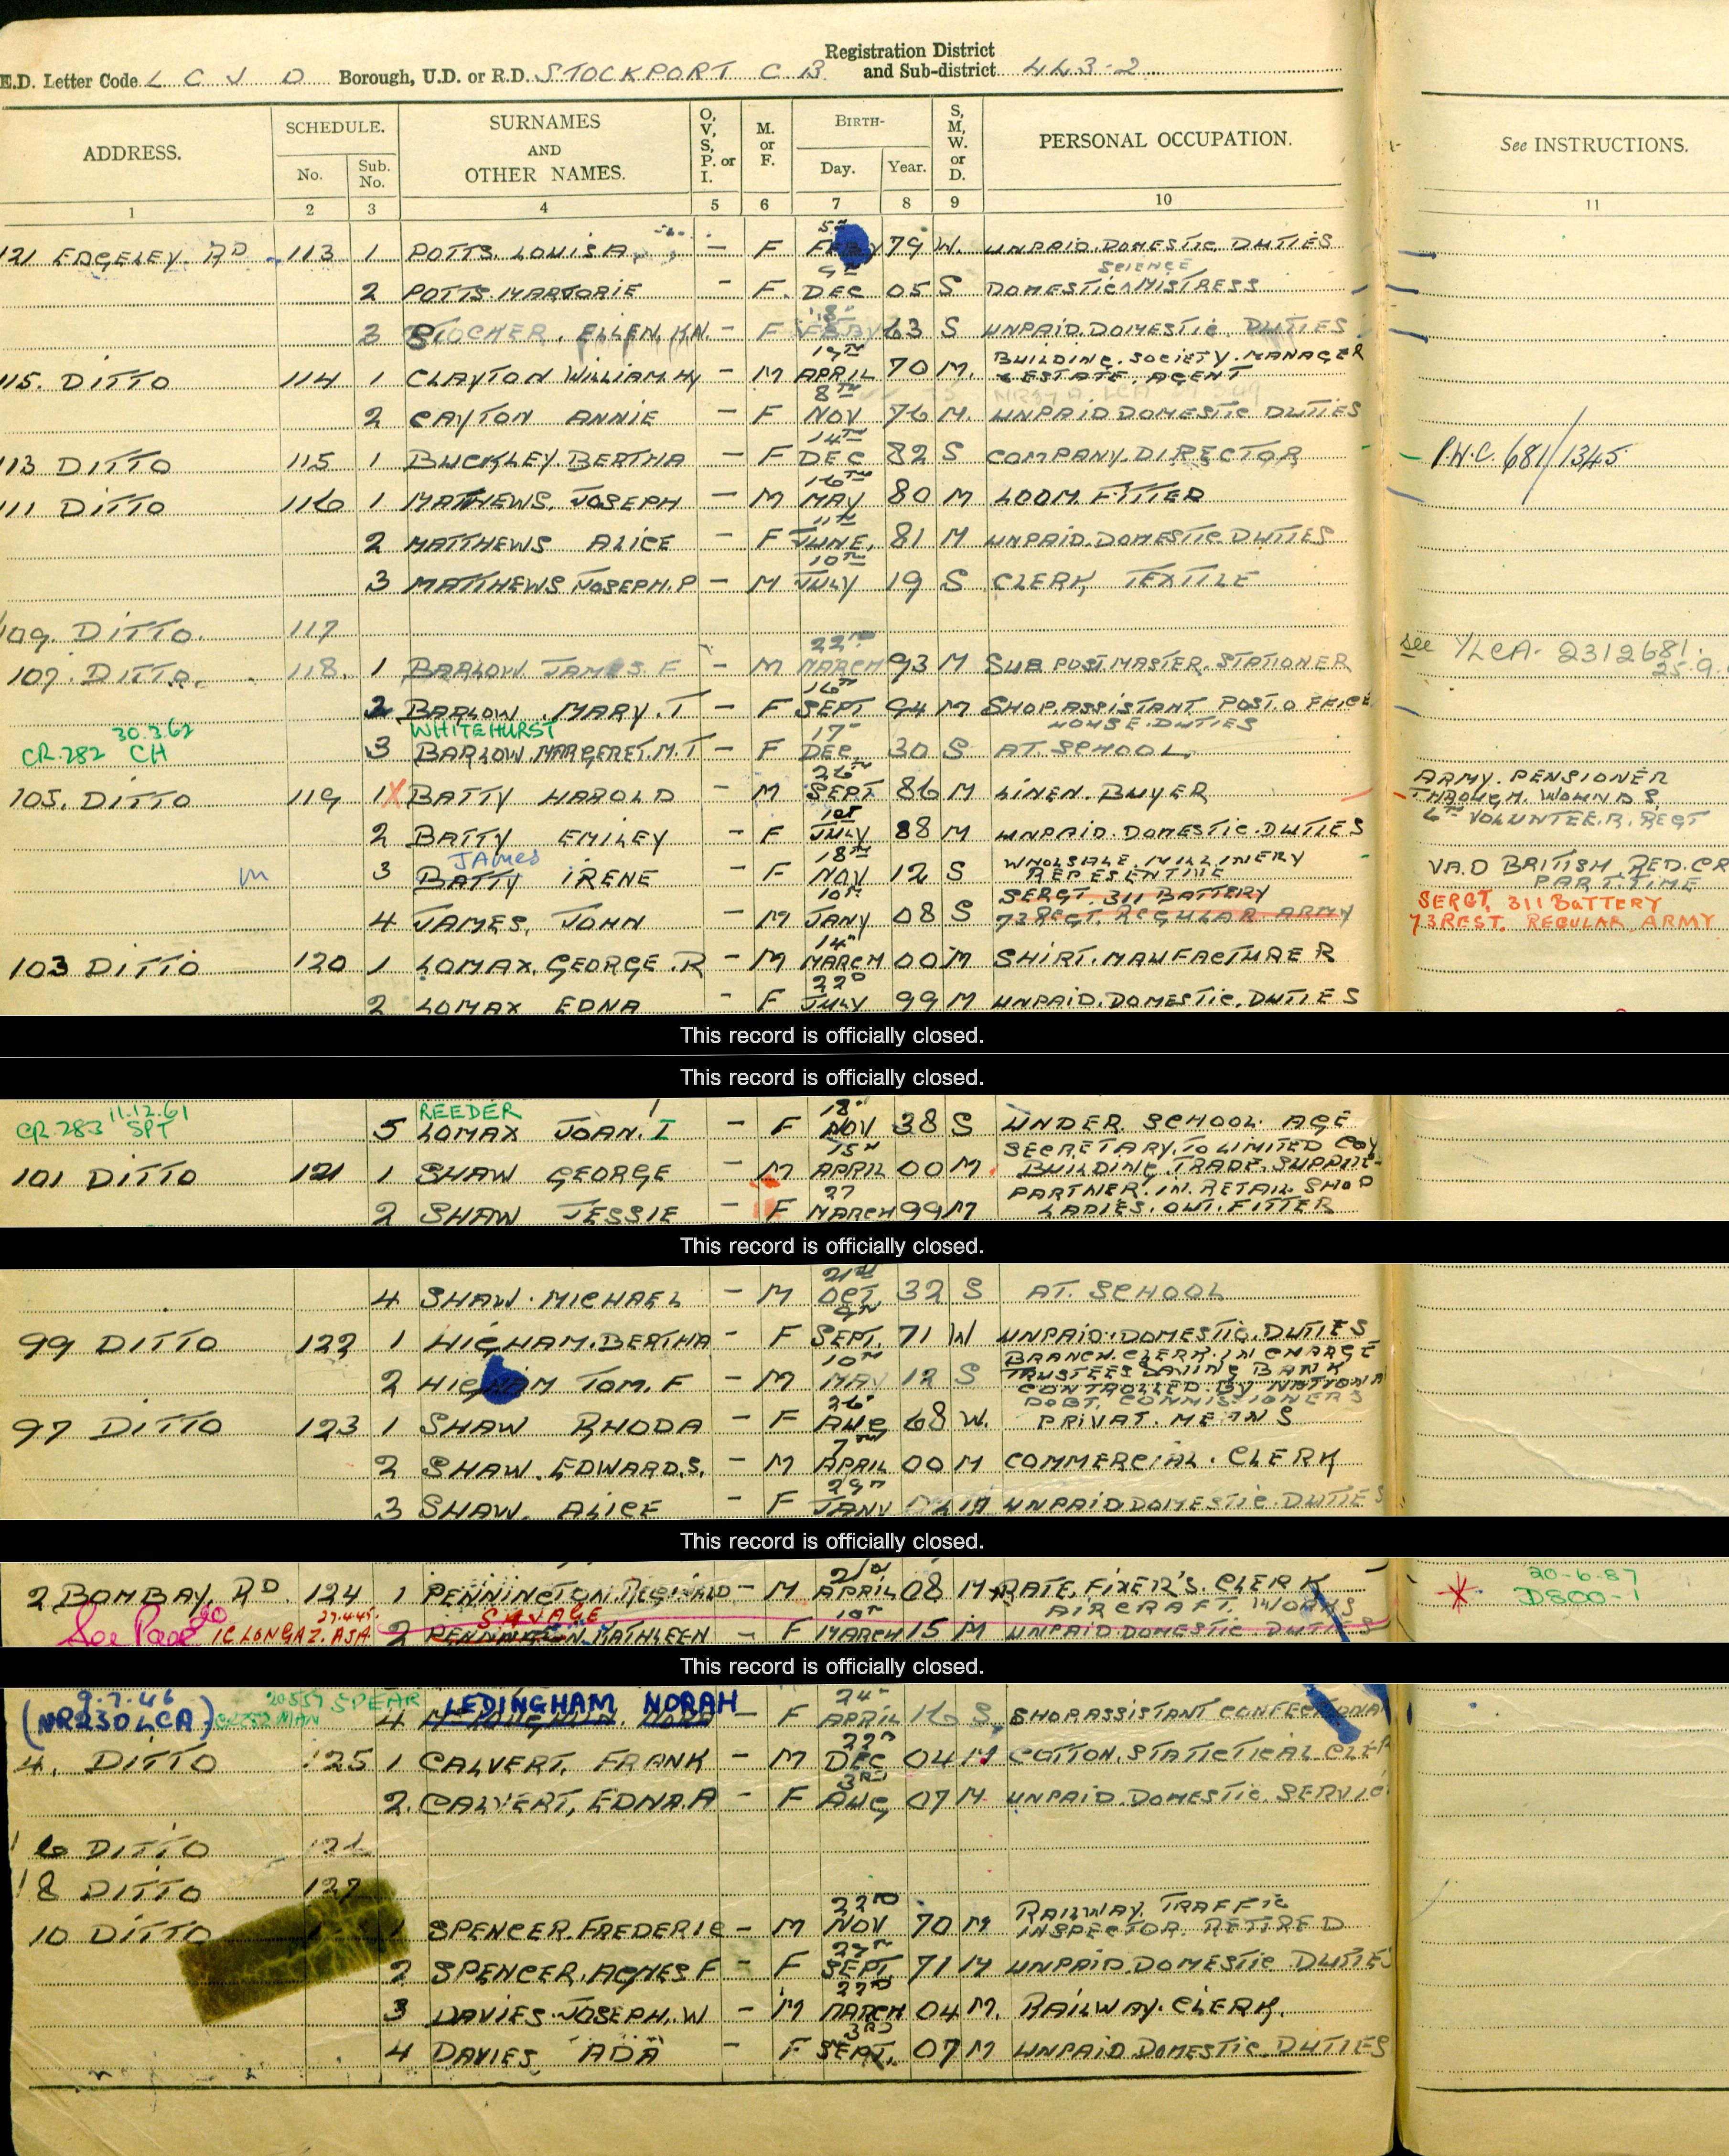 Registration District
E.D. Letter Code L C J D Borough, U.D. or R.D. STOCKPORT C B. and Sub-district 443-2
ADDRESS. SCHEDULE. No. Sub. No. SURNAMES AND OTHER NAMES. O, V, S, P. or I. M. or F. BIRTH- Day. Year. S, M, W. or D. PERSONAL OCCUPATION. See INSTRUCTIONS.
1 2 3 4 5 6 7 8 9 10 11
121 EDGELEY RD 113 1 POTTS. LOUISA — F 5TH FEBY 79 W. UNPAID DOMESTIC DUTIES
2 POTTS MARJORIE — F. 9TH DEC 05 S DOMESTIC ^ SCIENCE MISTRESS
3 STOCKER, ELLEN, KN. — F 18TH FEBY 63 S UNPAID DOMESTIC DUTIES
115. DITTO 114 1 CLAYTON WILLIAM. HY — M 19TH APRIL 70 M. BUILDING. SOCIETY. MANAGER & ESTATE. AGENT
2 CAYTON ANNIE — F 8TH NOV 76 M. UNPAID DOMESTIC DUTIES
113 DITTO 115 1 BUCKLEY. BERTHA — F 14TH DEC 82 S COMPANY. DIRECTOR P.W.C. 681/1345
111 DITTO 116 1 MATHEWS. JOSEPH — M 16TH MAY 80 M LOOM FITTER
2 MATTHEWS ALICE — F 11TH JUNE, 81 M UNPAID. DOMESTIC DUTIES
3 MATTHEWS JOSEPH. P — M 10TH JULY 19 S CLERK, TEXTILE
109. DITTO. 117
107. DITTO. 118. 1 BARLOW JAMES. F — M 22ND MARCH 93 M SUB POST MASTER. STATIONER see YLCA- 2312681. 25.9.
2 BARLOW. MARY. T — F 16TH SEPT 94 M SHOP. ASSISTANT POST. OFFICE HOUSE. DUTIES
30.3.62 WHITEHURST
CR.282 CH 3 BARLOW. MARGERET. M. T — F 17" DEC, 30 S AT. SCHOOL,
105. DITTO 119 1X BATTY HAROLD — M 26TH SEPT 86 M LINEN. BUYER ARMY. PENSIONER THROUGH. WOUNDS, 6TH VOLUNTEER. REGT
2 BATTY EMILEY — F 10TH JULY 88 M UNPAID. DOMESTIC. DUTIES
James
m 3 BATTY IRENE — F 18TH NOV 12 S WHOLSALE. MILLINERY REPESENTINE VA.D BRITISH. RED. CR PART. TIME
4 JAMES, JOHN — M 10TH JANY 08 S SERGT 311 BATTERY 73 REGT. REGULAR ARMY SERGT, 311 BATTERY 73 REST. REGULAR ARMY
103 DITTO 120 1 LOMAX, GEORGE. R — M 14" MARCH 00 M SHIRT. MANFACTURER
2 LOMAX EDNA - F 22D JULY 99 M UNPAID. DOMESTIC. DUTIES
This record is officially closed.
This record is officially closed.
11.12.61 REEDER
CR.283 SPT 5 LOMAX JOAN. I — F 18" NOV 38 S UNDER SCHOOL AGE
101 DITTO 121 1 SHAW GEORGE — M 15TH APRIL 00 M. SECRETARY. TO LIMITED COY BUILDING. TRADE. SUPPLIE-
2 SHAW JESSIE — F 27 MARCH 99 M PARTNER. IN. RETAIL SHOP LADIES. OUT. FITTER
This record is officially closed.
4 SHAW. MICHAEL — M 21ST OCT 32 S AT. SCHOOL
99 DITTO 122 1 HIGHAM. BERTHA — F 9TH SEPT. 71 W UNPAID. DOMESTIC. DUTIES
2 HIGHAM TOM. F — M 10TH MAY 12 S BRANCH. CLERK. IN CHARGE TRUSTEES SAVING BANK CONTROLLED. BY NATIONA DEBT. COMMISSIONERS
97 DITTO 123 1 SHAW RHODA — F 26" AUG 68 W. PRIVAT. MEANS
2 SHAW. EDWARD. S. — M 7TH APRIL 00 M COMMERCIAL. CLERK
3 SHAW. ALICE — F 29TH JANY M UNPAID DOMESTIC. DUTIES
This record is officially closed.
2 BOMBAY. RD. 124 1 PENNINGTON. REGINALD — M 21ST APRIL 08 M RATE. FIXER'S. CLERK AIRCRAFT. WORKS 20-6-87 DSCO-1
SAVAGE
See Page 20 27.4.45. 2 PENNINGTON. KATHLEEN — F 10TH MARCH 15 M UNPAID DOMESTIC. DUTIES
This record is officially closed.
9.7.46 SPEAR LEDINGHAM NORAH
(NR230 LCA) 4 — F 24" APRIL 16 S, SHOP ASSISTANT CONFECTIONA
4. DITTO 125 1 CALVERT, FRANK — M 22D DEC 04 M COTTON. STATICTICAL CLER
2. CALVERT, EDNA. A — F 3RD AUG 07 M UNPAID. DOMESTIC. SERVIC
6 DITTO 126
8 DITTO 127
10 DITTO 1 SPENCER. FREDERIC — M 22ND NOV 70 M RAILWAY. TRAFFIC INSPECTOR. RETIRED
2 SPENCER. AGNES F — F SEPT 71 M UNPAID. DOMESTIC DUTIES
3 DAVIES. JOSEPH. W — M 22ND MARCH 04 M. RAILWAY. CLERK.
4 DAVIES ADA — F 3RD SEPT. 07 M UNPAID. DOMESTIC. DUTIES